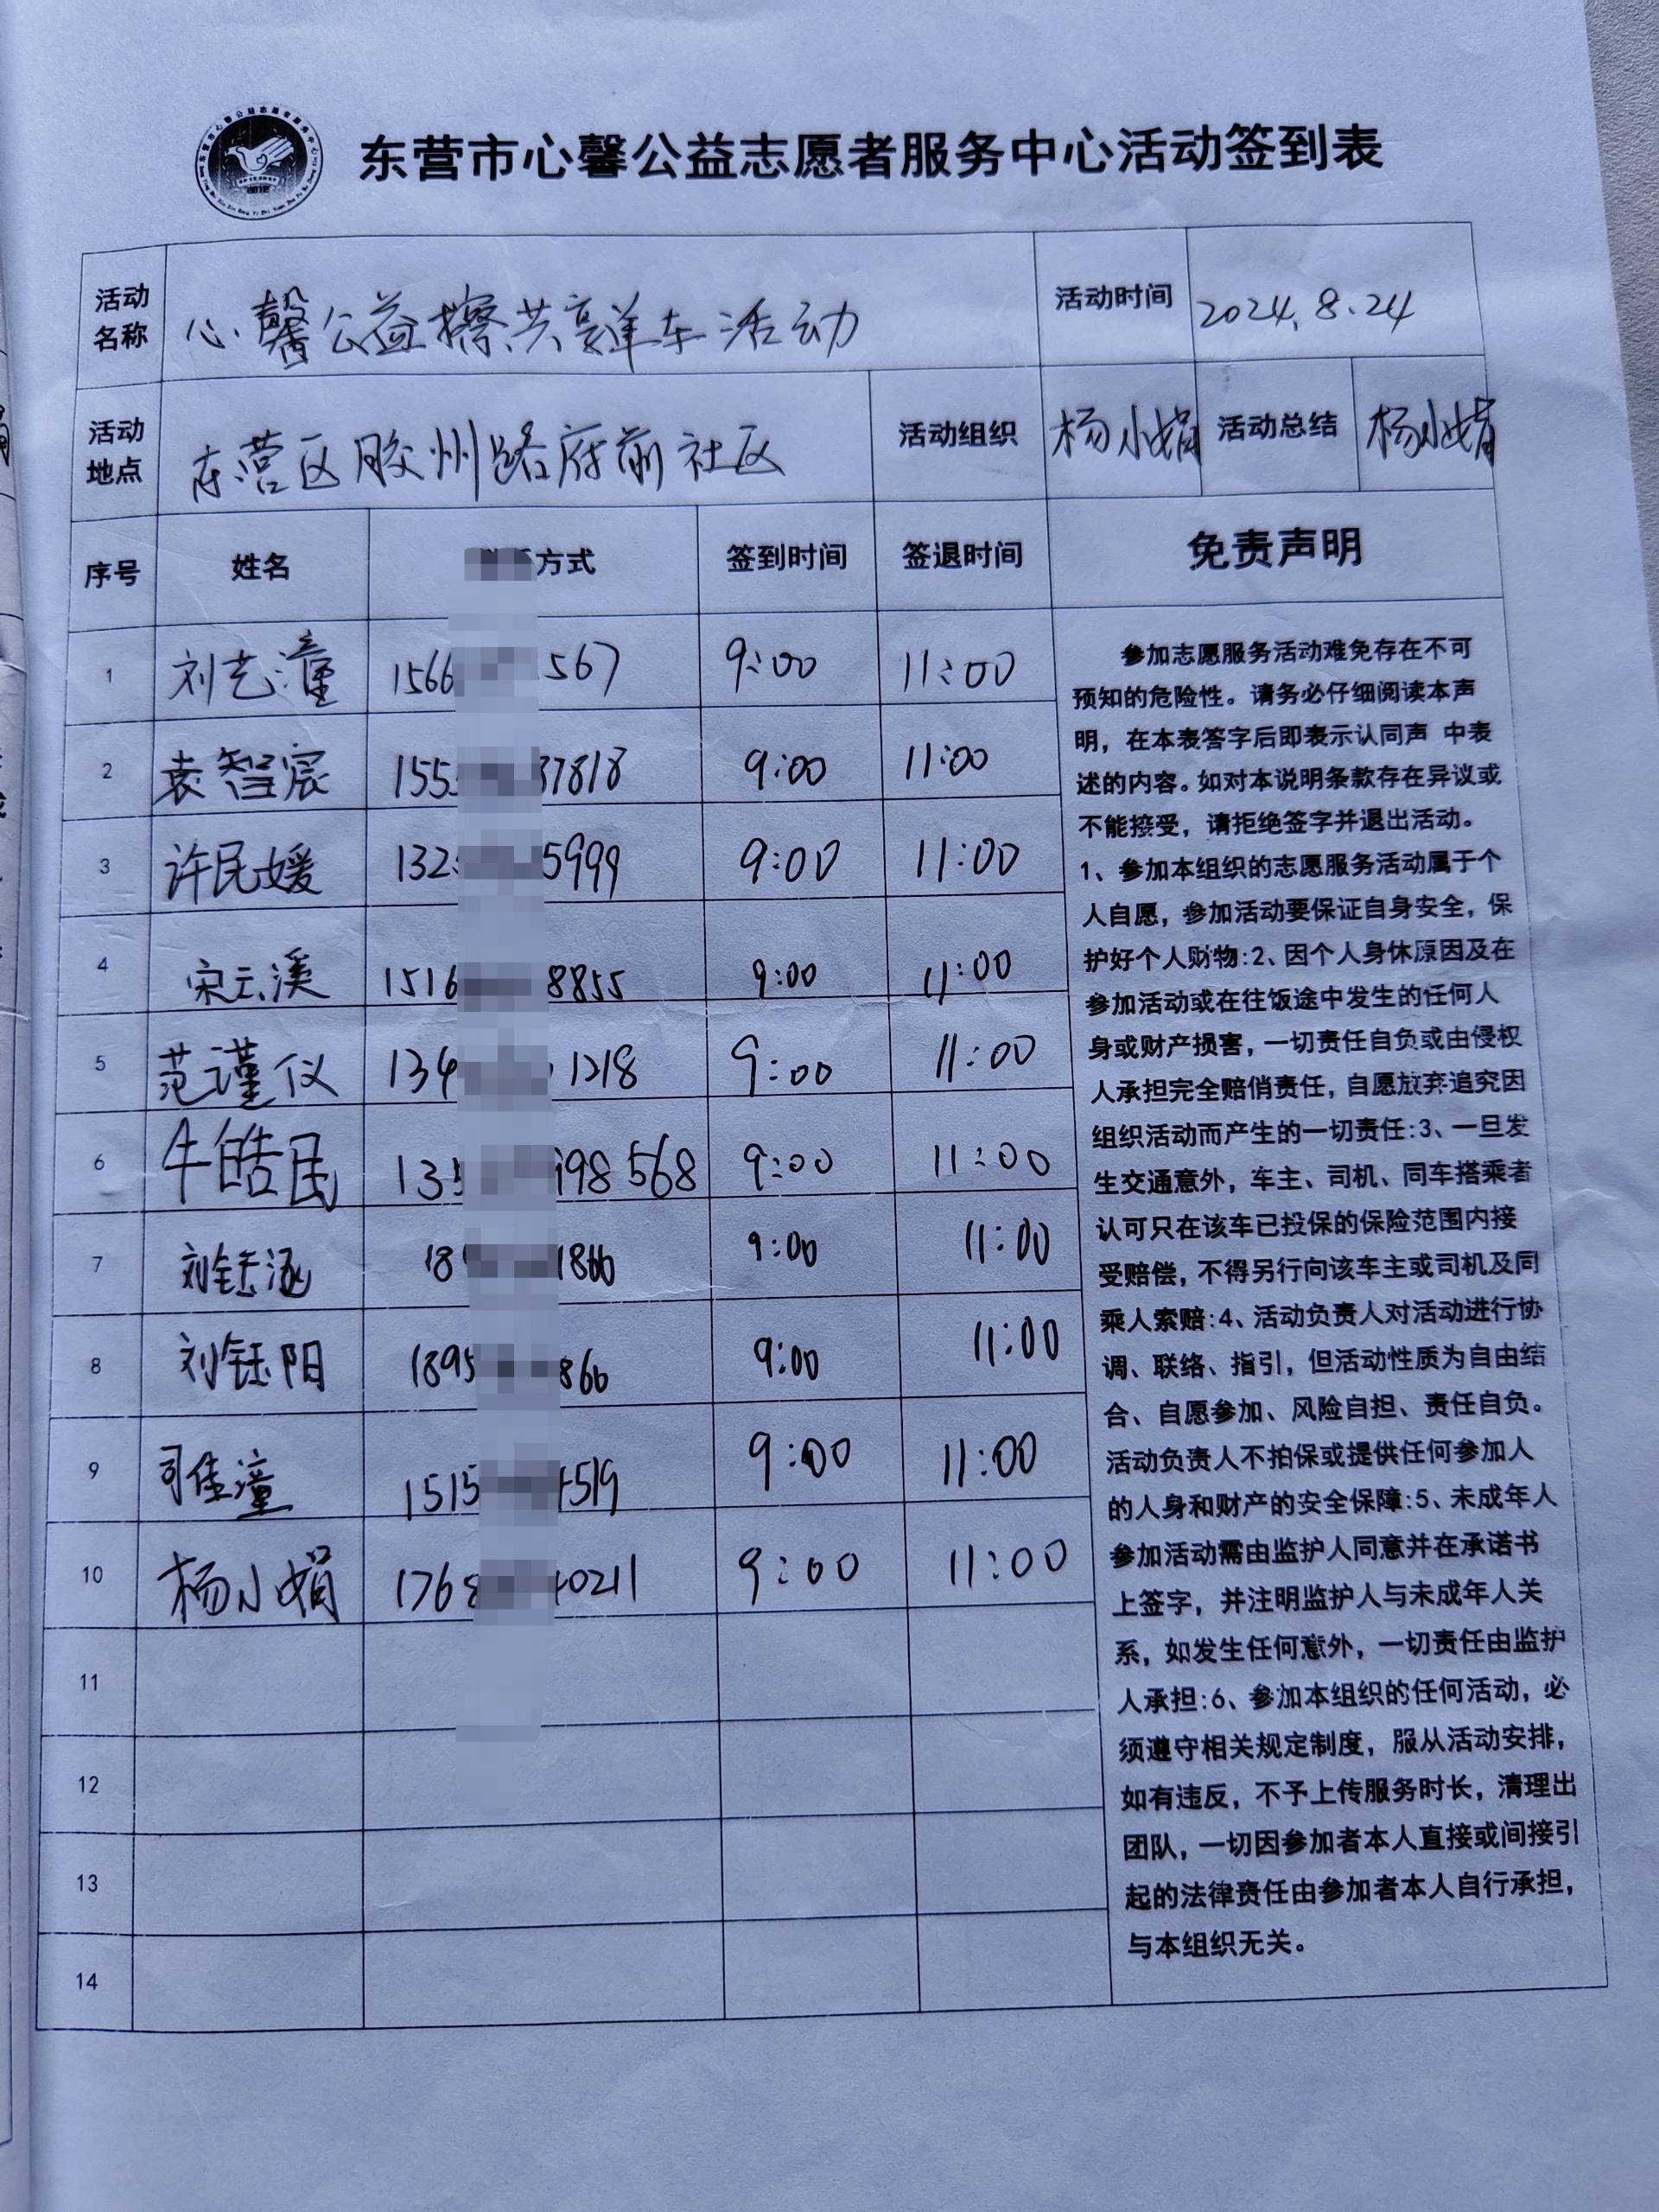 东营市心馨公益志愿者服务中心活动签到表
活动名称 心馨公益擦共享单车活动 活动时间 2024.8.24
活动地点 东营区胶州路府前社区 活动组织 杨小娟 活动总结 杨小娟
序号 姓名 方式 签到时间 签退时间 免责声明
1 刘艺潼 1566 567 9:00 11:00
2 袁智宸 155 37818 9:00 11:00
3 许民媛 132 5999 9:00 11:00
4 宋云溪 1516 8855 9:00 11:00
5 范谨仪 134 1218 9:00 11:00
6 牛皓民 135 998568 9:00 11:00
7 刘钰涵 18 1866 9:00 11:00
8 刘钰阳 1895 866 9:00 11:00
9 司佳潼 1515 519 9:00 11:00
10 杨小娟 1768 0211 9:00 11:00
11
12
13
14
参加志愿服务活动难免存在不可
预知的危险性。请务必仔细阅读本声
明，在本表答字后即表示认同声 中表
述的内容。如对本说明条款存在异议或
不能接受，请拒绝签字并退出活动。
1、参加本组织的志愿服务活动属于个
人自愿，参加活动要保证自身安全，保
护好个人财物:2、因个人身休原因及在
参加活动或在往饭途中发生的任何人
身或财产损害，一切责任自负或由侵权
人承担完全赔俏责任，自愿放弃追究因
组织活动而产生的一切责任:3、一旦发
生交通意外，车主、司机、同车搭乘者
认可只在该车已投保的保险范围内接
受赔偿，不得另行向该车主或司机及同
乘人索赔:4、活动负责人对活动进行协
调、联络、指引，但活动性质为自由结
合、自愿参加、风险自担、责任自负。
活动负责人不拍保或提供任何参加人
的人身和财产的安全保障:5、未成年人
参加活动需由监护人同意并在承诺书
上签字，并注明监护人与未成年人关
系，如发生任何意外，一切责任由监护
人承担:6、参加本组织的任何活动，必
须遵守相关规定制度，服从活动安排，
如有违反，不予上传服务时长，清理出
团队，一切因参加者本人直接或间接引
起的法律责任由参加者本人自行承担，
与本组织无关。